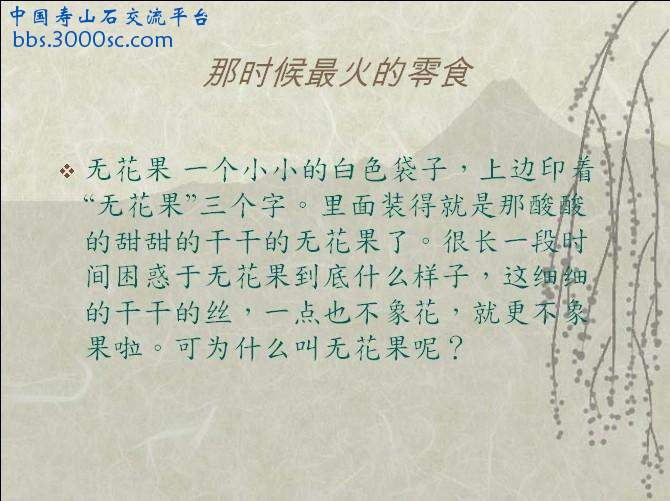 中国寿山石交流平台
bbs.3000sc.com
那时候最火的零食
无花果 一个小小的白色袋子，上边印着
“无花果”三个字。里面装得就是那酸酸
的甜甜的干干的无花果了。很长一段时
间困惑于无花果到底什么样子，这细细
的干干的丝，一点也不象花，就更不象
果啦。可为什么叫无花果呢？